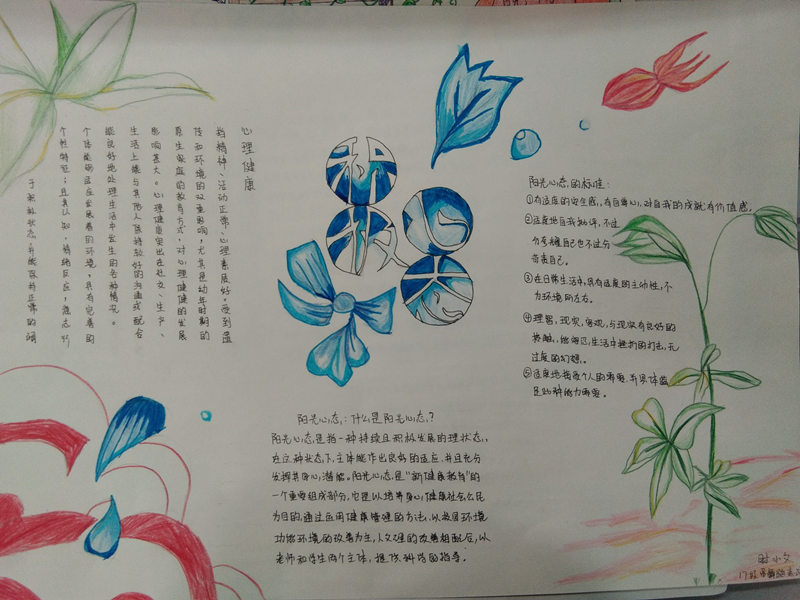 心理健康
指精神、活动正常、心理素质好。受到遗
传和环境的双重影响,尤其是幼年时期的
原生家庭的教育方式,对心理健康的发展
影响甚大。心理健康突出在社交、生产、
生活上能与其他人保持较好的沟通或配合
能良好地处理生活中发生的各种情况。
个体能够适应发展着的环境,具有完善的
个性特征;且其认知、情绪反应,意志行
于积极状态,并能保持正常的调
阳光心态的标准:
①有适度的安全感,有自尊心,对自我的成就有价值感。
②适度地自我批评,不过
分夸耀自己也不过分
苛责自己。
③在日常生活中,具有适度的主动性,不
为环境所左右。
④理智,现实,客观,与现实有良好的
接触,能容忍生活中挫折的打击,无
过度的幻想。
⑤适度地接受个人的需要,并具体满
足此种能力需要。
阳光心态:什么是阳光心态?
阳光心态是指一种持续且积极发展的理状态,
在这种状态下,主体能作出良好的适应,并且充分
发挥其身心潜能。阳光心态是“新健康教育”的
一个重要组成部分,它是以培养身心健康社会公民
为目的,通过运用健康管理的方法,以校园环境
功能环境的改善为主,人文建的改善相配合,以
老师和学生两个主体,提供科学的指导。